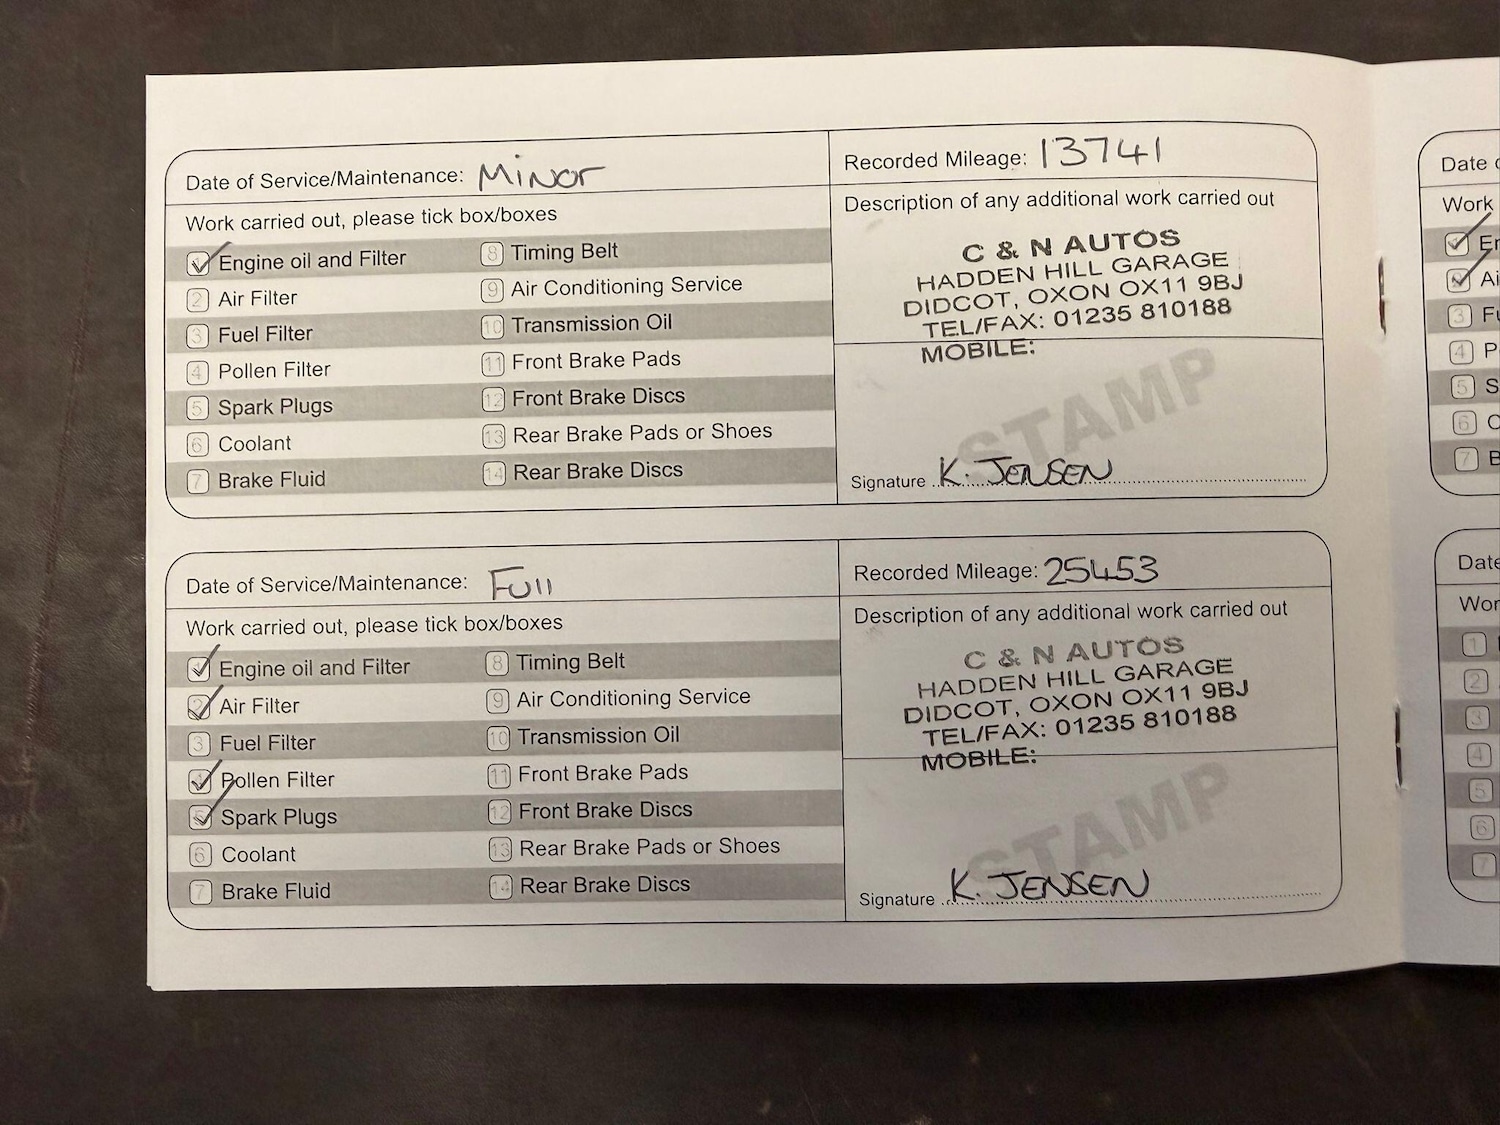 Date of Service/Maintenance: Minor
Recorded Mileage: 13741
Work carried out, please tick box/boxes
1 Engine oil and Filter
2 Air Filter
3 Fuel Filter
4 Pollen Filter
5 Spark Plugs
6 Coolant
7 Brake Fluid
8 Timing Belt
9 Air Conditioning Service
10 Transmission Oil
11 Front Brake Pads
12 Front Brake Discs
13 Rear Brake Pads or Shoes
14 Rear Brake Discs
Description of any additional work carried out
C & N AUTOS
HADDEN HILL GARAGE
DIDCOT, OXON OX11 9BJ
TEL/FAX: 01235 810188
MOBILE:
STAMP
Signature K. JENSEN
Date of Service/Maintenance: Full
Recorded Mileage: 25453
Work carried out, please tick box/boxes
1 Engine oil and Filter
2 Air Filter
3 Fuel Filter
4 Pollen Filter
5 Spark Plugs
6 Coolant
7 Brake Fluid
8 Timing Belt
9 Air Conditioning Service
10 Transmission Oil
11 Front Brake Pads
12 Front Brake Discs
13 Rear Brake Pads or Shoes
14 Rear Brake Discs
Description of any additional work carried out
C & N AUTOS
HADDEN HILL GARAGE
DIDCOT, OXON OX11 9BJ
TEL/FAX: 01235 810188
MOBILE:
STAMP
Signature K. JENSEN
Date
Work
3
4
5
6
7
Date
1
2
3
4
5
6
7